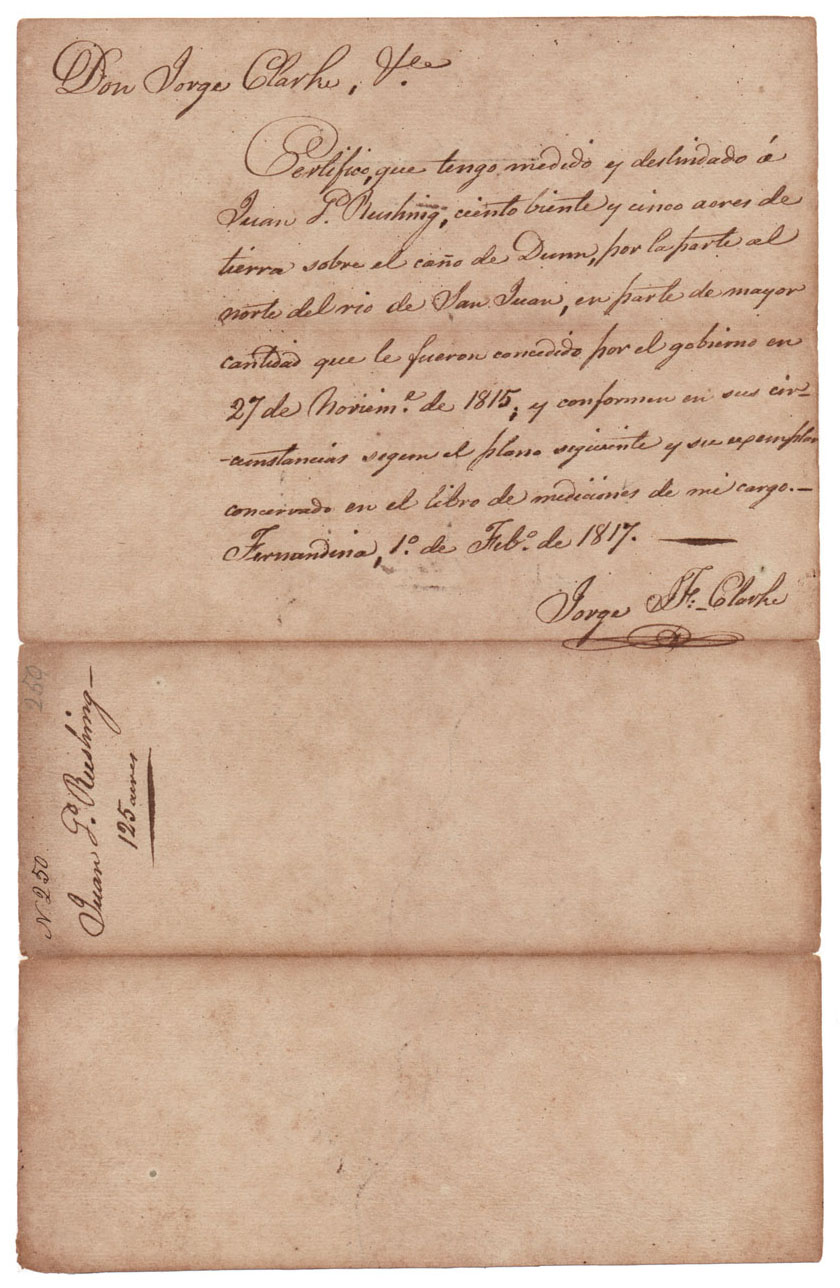 Don Jorge Clarke, &ce
Certifico, que tengo medido y deslindado á
Juan Gº. Rushing, ciento biente y cinco acres de
tierra sobre el caño de Dunn, por la parte al
norte del rio de San Juan, en parte de mayor
cantidad que le fueron concedido por el gobierno en
27 de Noviemº. de 1815; y conformen en sus cir-
-cunstancias segun el plano siguiente y su exemplar
concervado en el libro de mediciones de mi cargo.—
Fernandina, 1º. de Febº. de 1817.
Jorge J. F. Clarke
250
N 250
Juan Gº. Rushing—
125 acres